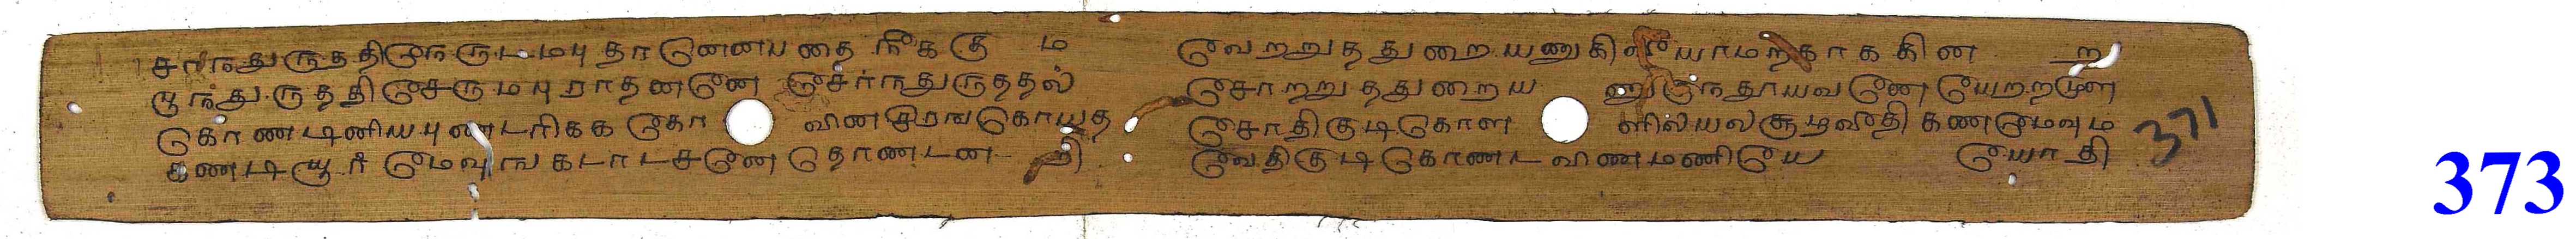 சாந்துருததிநெருடமபு தானெனபதை நீககு ம
பூந்துருததி சேருமபுராதனனே சேர்ந்துருததல்
கொணடினியபுணடரிகக கோ வினசிரஙகொயத
கணடியூர் மேவுஙகடாடசனே தொணடன றி
வேறறுததுறையணுகி லியாமறகாககின ற
சோறறுததுறைய னுநதூயவனே யேறறமுள
சோதிகுடிகொள ளிலியலசூழவீதி கணமேவும
வேதிகுடிகொணட விணமணியே யோதி
371
373